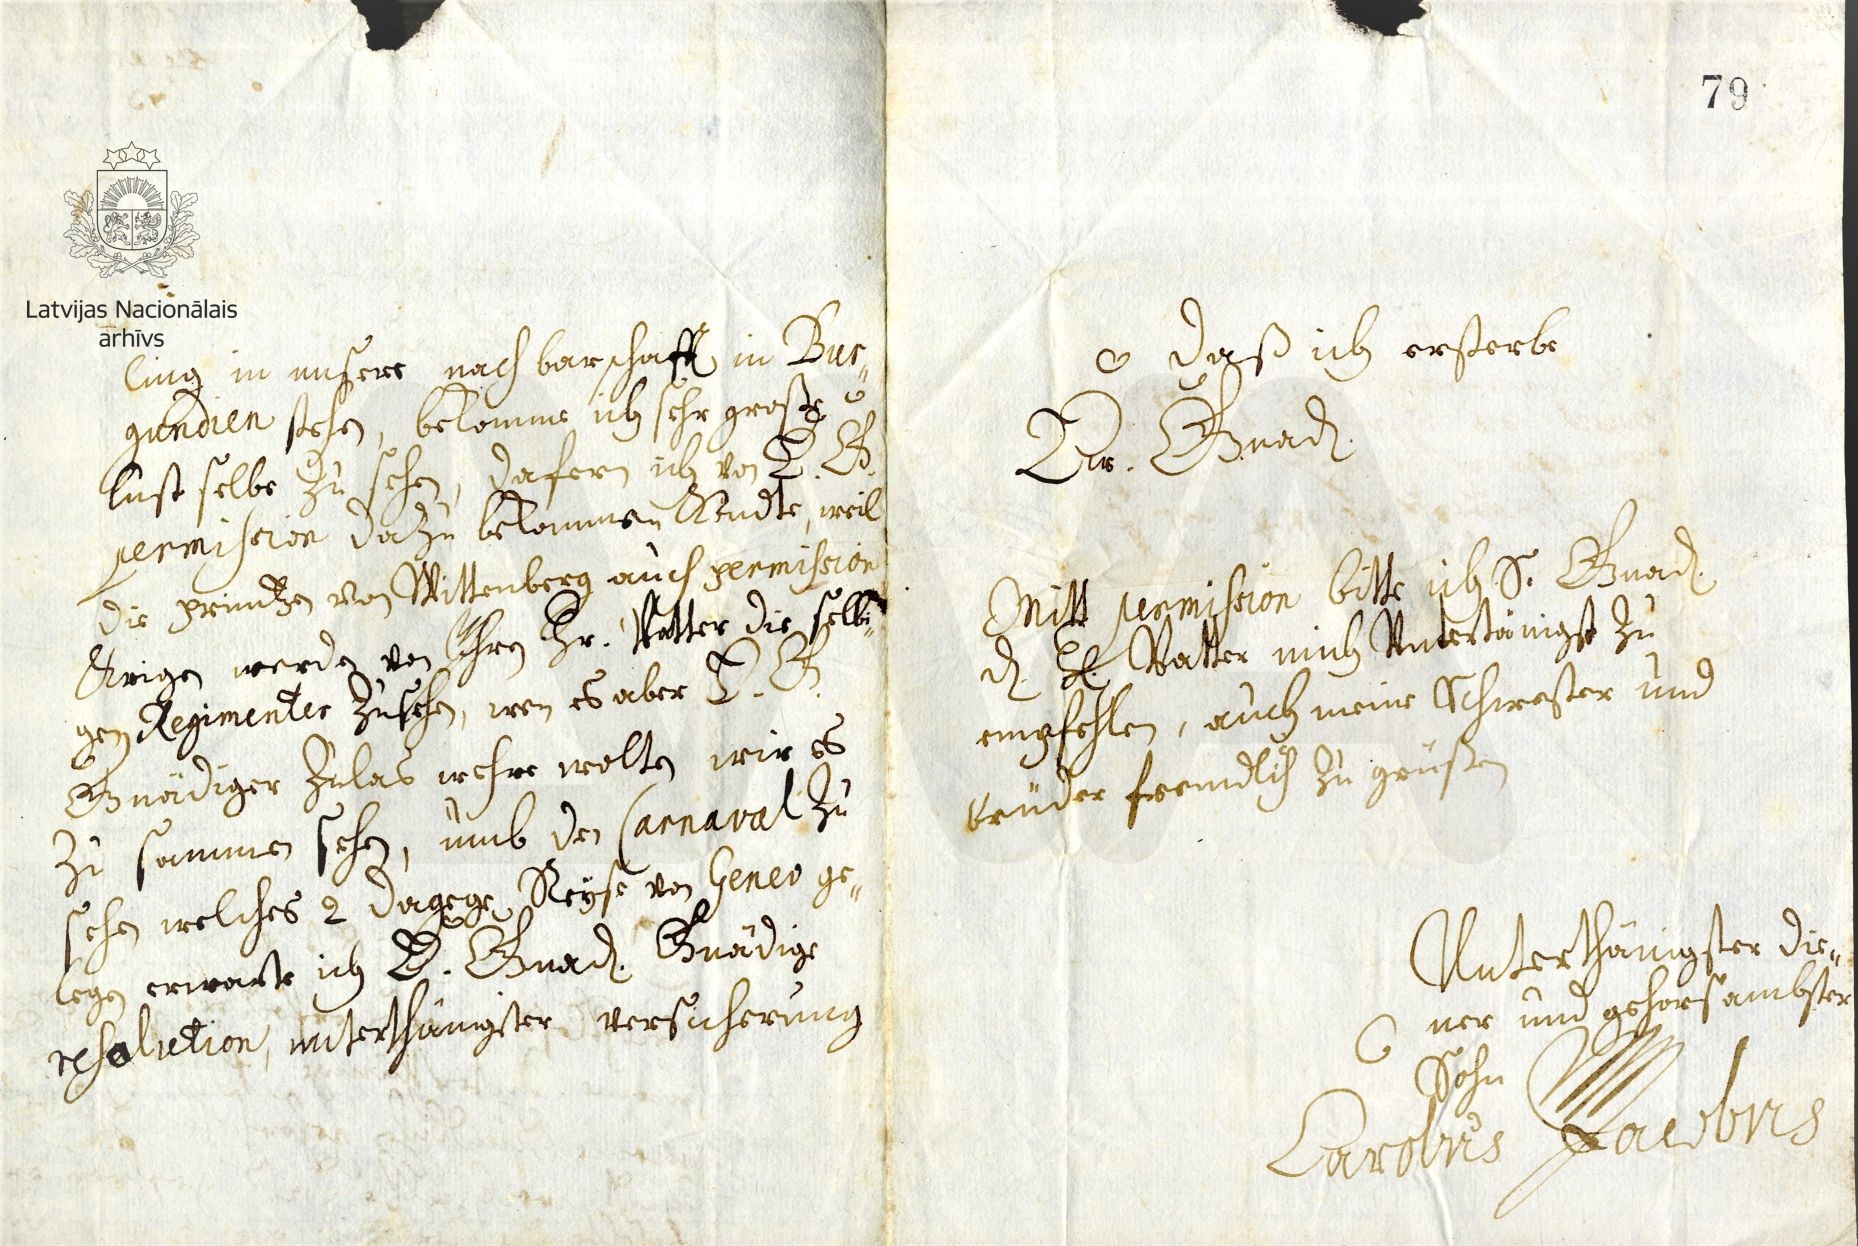 Latvijas Nacionālais
arhīvs
ling in unsere nachbarschafft in Bur„
gundien stehen, bekomme ich sehr große
lust selbe zu sehen, dafern ich von E. G.
permission dazu bekommen köndte, weil
die printzen von Wittenberg auch permission
krigen werden von Ihren Hr. Vatter die selbi„
gen Regimenter zusehen, wen es aber E. G.
Gnädiger Zulas wehre wolten wir es
zu sammen sehen, umb den Carnaval zu
sehen welches 2 dagege Reÿse von Genev ge„
legen erwarte ich E. Gnad. Gnädige
resolution, unterthänigster versicherung
79
daß ich ersterbe
Er. Gnad.
Mitt permission bitte ich S. Gnad.
d. H. Vatter mich Untertänigst zu
empfehlen, auch meine Schwester und
brüder freundlich zu grüßen
Unterthänigster die„
ner und gehorsambster
Sohn
Carolus Jacobus